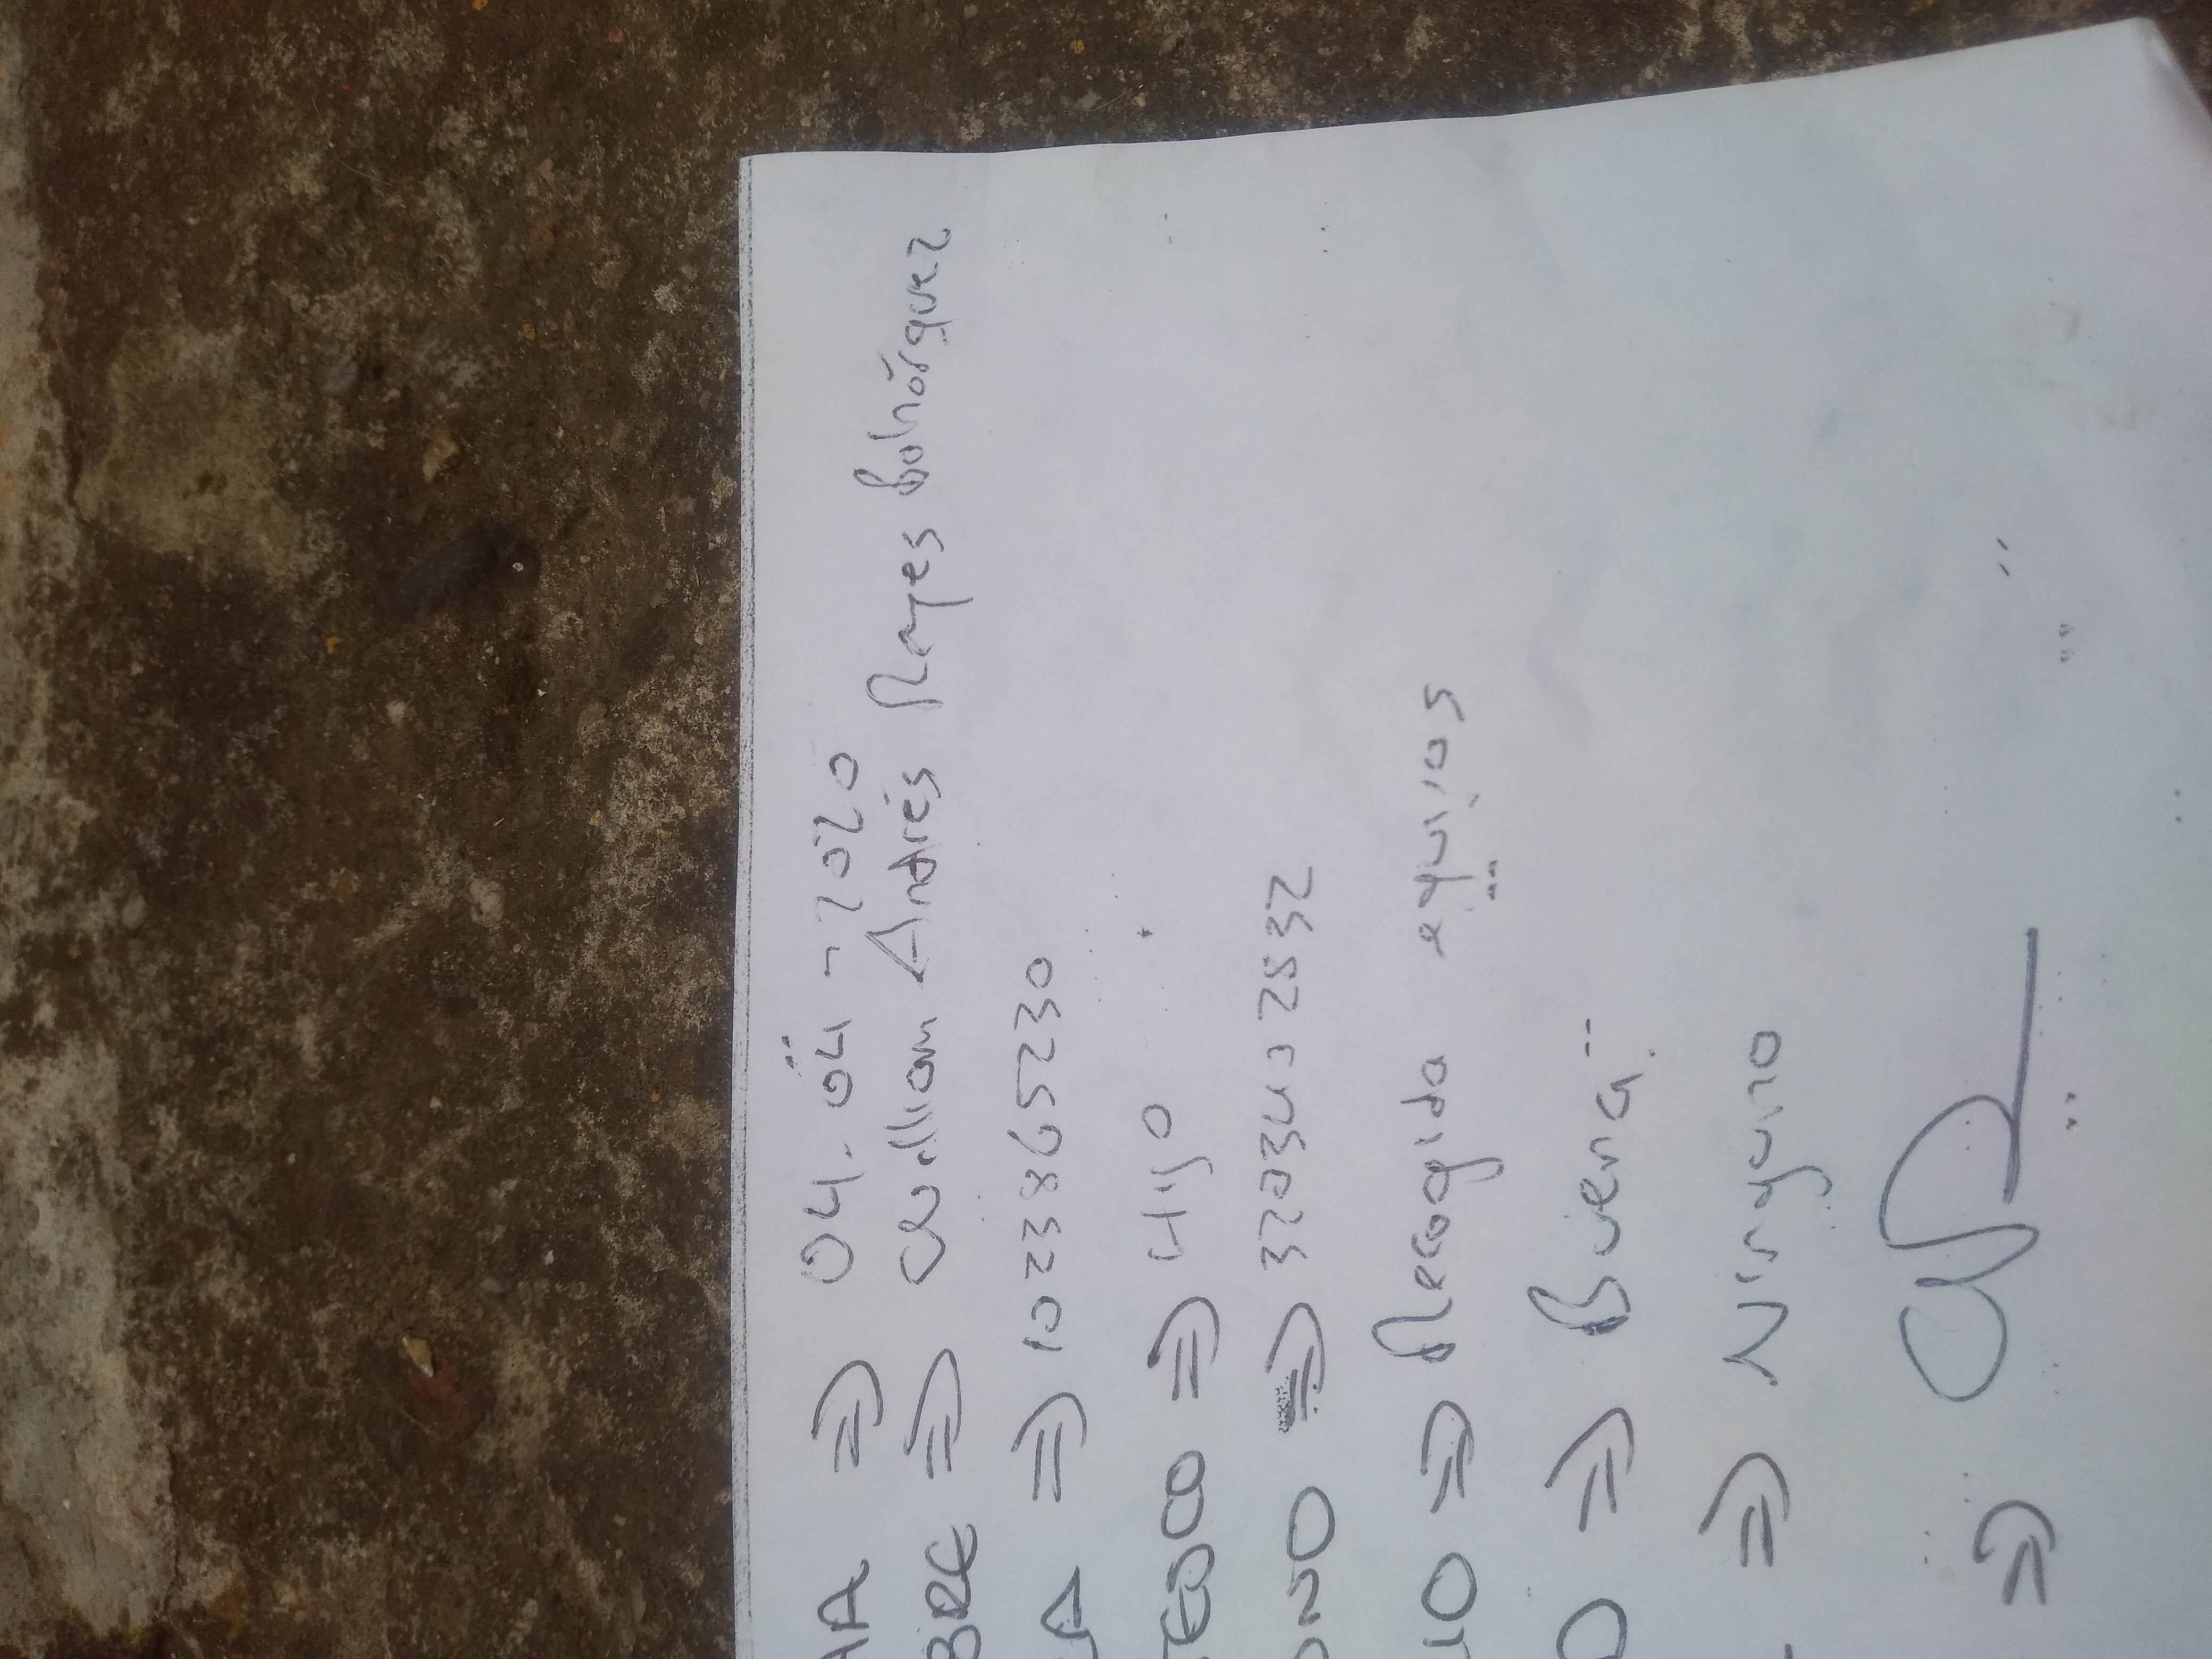 HA ⇒ 04-04-2020
BRE ⇒ William Andrés Reyes Bohórquez
LA ⇒ 1023865230
TESCO ⇒ Hijo
ONO ⇒ 3203402832
IO ⇒ Recogida equipos
O ⇒ Buena
⇒ Ninguno
⇒